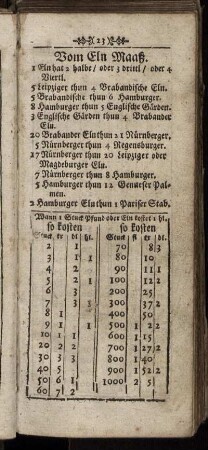 23
Vom Eln Maaß.
1 Eln hat 2 halbe / oder 3 drittl / oder 4
Viertl.
5 Leipziger thun 4 Brabandische Eln.
5 Brabandische thun 6 Hamburger.
8 Hamburger thun 5 Englische Gärden.
3 Englische Gärden thun 4 Brabander
Eln.
20 Brabander Eln thun 21 Nürnberger.
5 Nürnberger thun 4 Regenspurger.
17 Nürnberger thun 20 Leipziger oder
Magdeburger Eln.
7 Nürnberger thun 8 Hamburger.
5 Hamburger thun 12 Genueser Pal-
men.
2 Hamburger Eln thun 1 Pariser Stab.
Wann 1 Stuck Pfund oder Eln kostet 1 hl.
so kosten so kosten
Stuck kr dl hl. Stuck fl kr dl
2 1 70 8 3
3 1 1 80 10
4 2 90 11 1
5 2 1 100 12 2
6 3 200 25
7 3 3 300 37 2
8 1 400 50
9 1 1 500 1 2 2
10 1 1 600 1 15
20 2 2 700 1 27 2
30 3 3 800 1 40
40 5 900 1 52 2
50 6 1 1000 2 5
60 7 2